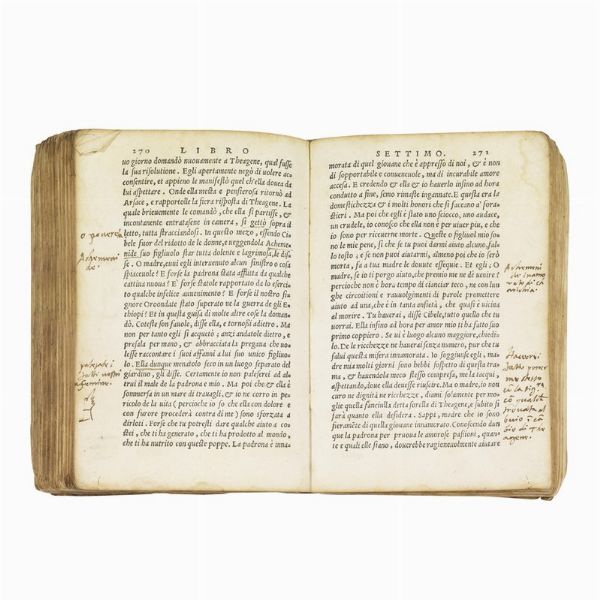 270 LIBRO
uo giorno domandò nuouamente a Theagene, qual fusse
la sua risolutione. Egli apertamente negò di uolere ac
consentire, et appieno le manifestò quel ch'ella doueа da
lui aspettare. Onde ella mesta e pensierosa ritornò ad
Arsace, e rapportolle la fiera risposta di Theagene. La
quale brieuemente le comandò, che ella si partisse, &
incontanente entratasene in camera, si gettò sopra il
letto, tutta stracciandosi. In questo mezo, essendo Ci
bele fuor del ridotto de le donne, ueggendola Acheme-
nide suo figliuolo star tutta dolente e lagrimosa, le dis
se. O madre, euui egli interuenuto alcun sinistro o cosa
spiaceuole? E forse la padrona stata afflitta da qualche
cattiua nuoua? E' forse statole rapportato da lo eserci
to qualche infelice auuenimento? E forse il nostro si
gnore Oroondate stato superato ne la guerra de gli E
thiopi? Et in questa guisa di molte altre cose la doman
dò. Coteste son fauole, disse ella, e tornossi adietro. Ma
non per tanto egli si acquetò; anzi andatole dietro, e
presala per mano, & abbracciata la pregaua che uo-
lesse raccontare i suoi affanni a lui suo unico figliuo-
lo. Ella dunque menatolo seco in un luogo separato del
giardino, gli disse. Certamente io non paleserei ad al-
trui il male de la padrona e mio. Ma poi che & ella è
sommersa in un mare di trauagli, & io ne corro in pe-
ricolo de la uita (percioche io so che ella con dolore e
con furore procederà contra di me) sono sforzata a
dirloti. Forse che tu potresti dare qualche aiuto a co
stei, che ti ha generato, che ti ha prodotto al mondo,
che ti ha nutrito con queste poppe. La padrona è inna-
Achemeni
de
SETTIMO. 271
morata di quel giouane che è appresso di noi, & è non
di sopportabile e conueneuole, ma di incurabile amore
accesa. E credendo & ella & io hauerlo insino ad hora
condutto a fine, semo rimaste ingannate. E questa era la
domestichezza & i molti honori che si faceano a' fora-
stieri. Ma poi che egli è stato uno sciocco, uno audace,
un crudele, io conosco che ella non è per uiuer piu, e che
io sono per riceuerne morte. Queste o figliuol mio so-
no le mie pene, si che se tu puoi darmi aiuto alcuno, fal-
lo tosto; e se non puoi aiutarmi, almeno poi che io serò
morta, fa a tua madre le douute essequie. Et egli: O
madre, se io ti porgo aiuto, che premio me ne dè uenire?
percioche non è hora tempo di cianciar teco, ne con lun
ghe circuitioni e rauuolgimenti di parole promettere
aiuto ad una, che è in tanta ansietà, che quasi è uicina
al morire. Tu hauerai, disse Cibele, tutto quello che tu
uorrai. Ella insino ad hora per amor mio ti ha fatto suo
primo coppiero. Se ui è luogo alcuno maggiore, chiedi-
lo. De le ricchezze ne hauerai senza numero, pur che tu
salui questa misera innamorata. Io soggiunse egli, ma-
dre mia molti giorni sono hebbi sospetto di questa tra-
ma, & hauendola meco stesso compresa, me la tacqui,
aspettando, doue ella deuesse riuscire. Ma o madre, io non
curo ne dignità ne ricchezze, diami solamente per mo-
glie quella fanciulla detta sorella di Theagene, e subito si
farà quanto ella disidera. Sappi, madre che io sono
fieramēte di quella giouane innamorato. Conoscendo dun
que la padrona per pruoua le amorose passioni, quan-
te e quali elle siano, douerebbe ragioneuolmente aiutare